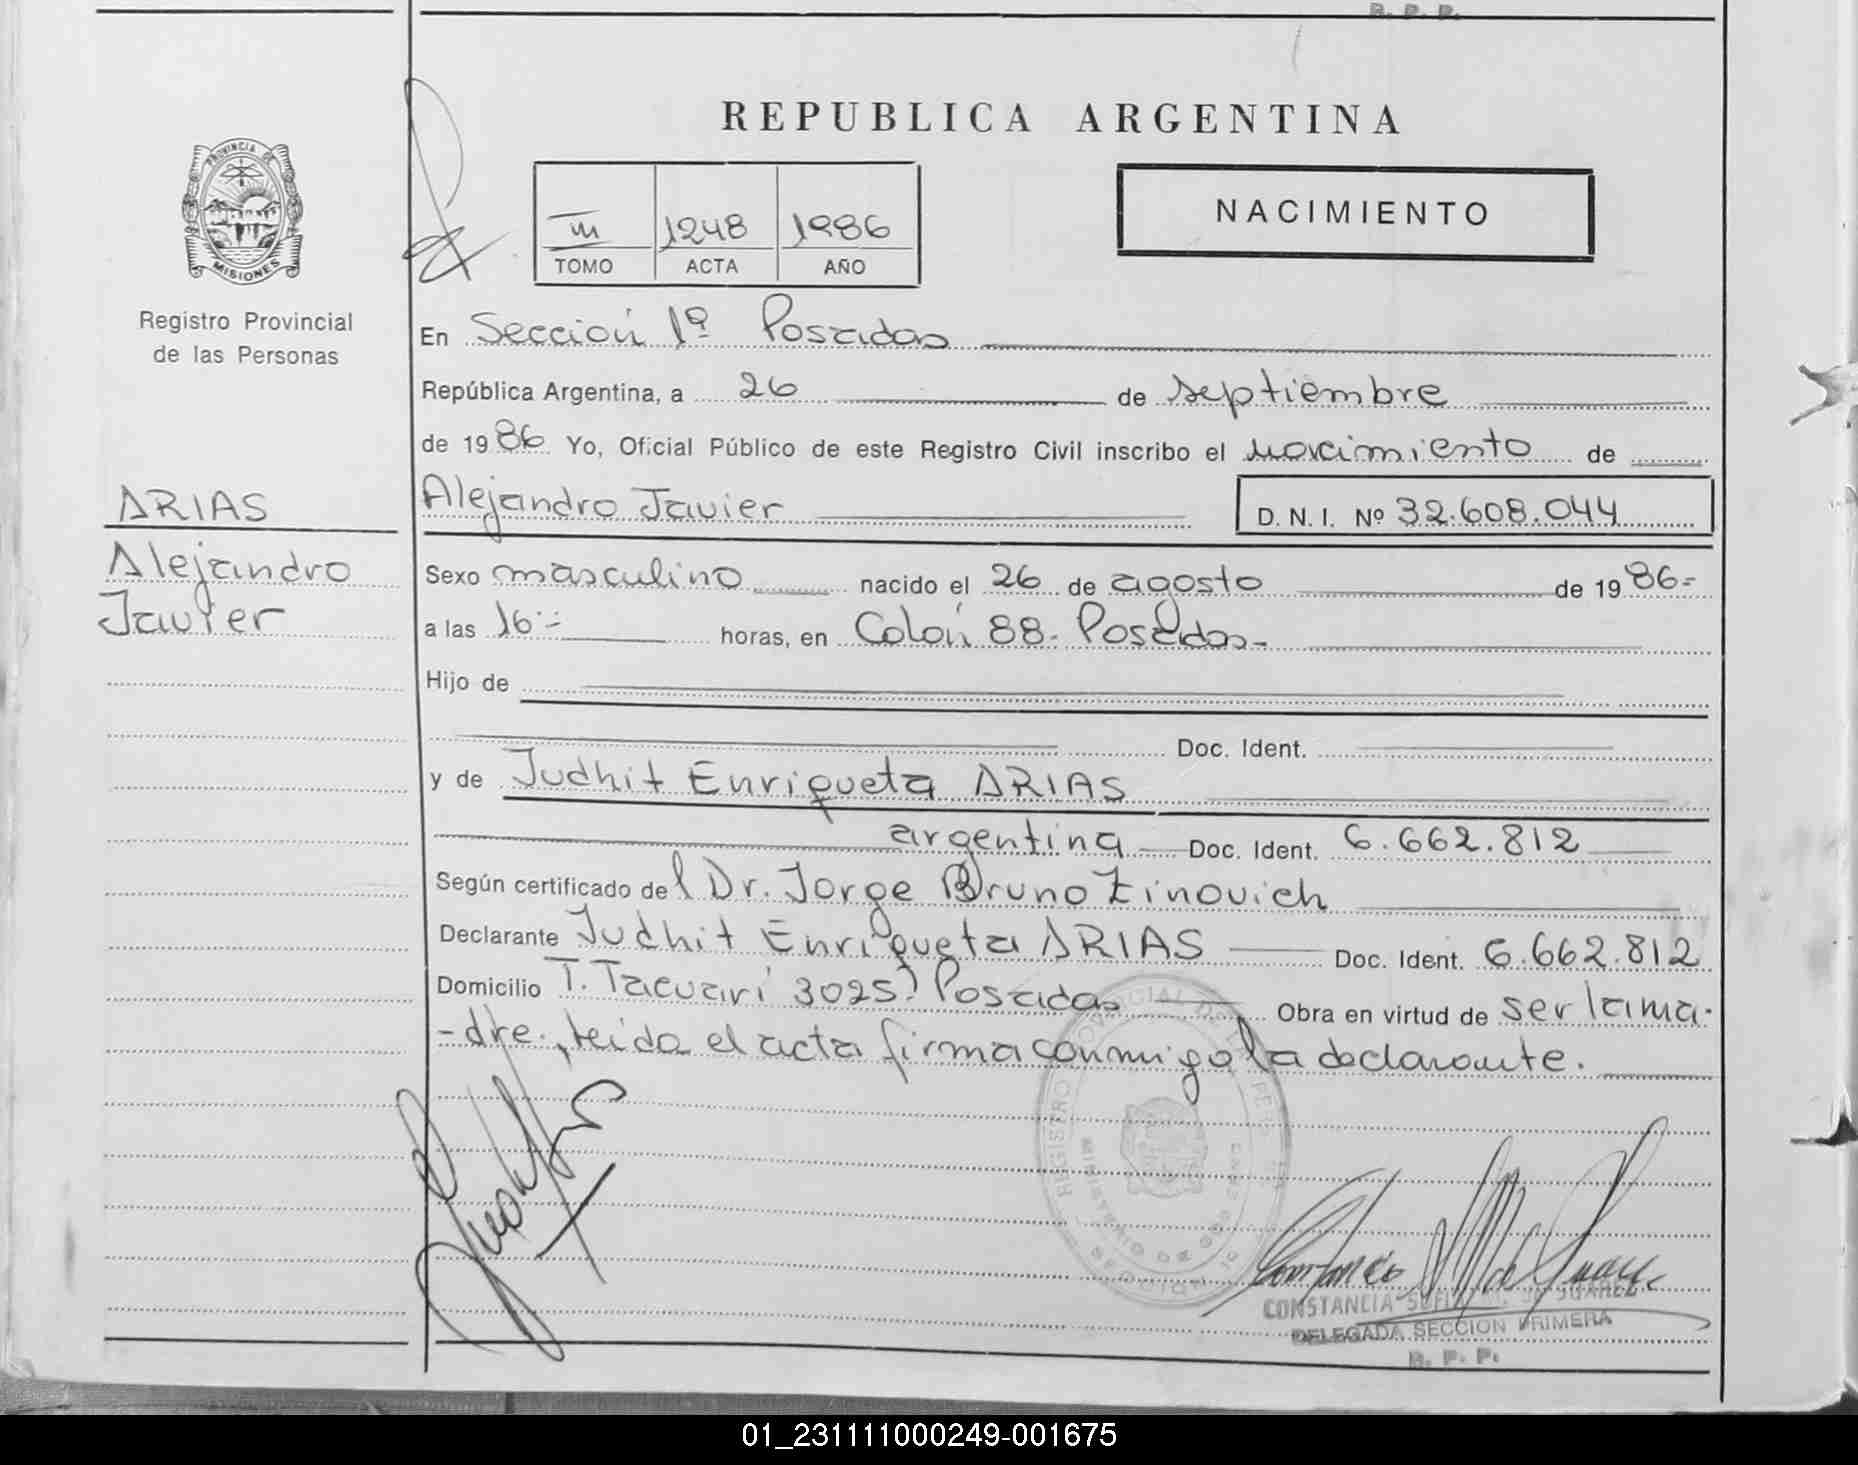 R. P. P.
REPUBLICA ARGENTINA
PROVINCIA DE
MISIONES
Registro Provincial
de las Personas
III 1248 1986
TOMO ACTA AÑO
NACIMIENTO
En Sección 1ª Posadas
República Argentina, a 26 de septiembre
de 1986 Yo, Oficial Público de este Registro Civil inscribo el nacimiento de
ARIAS
Alejandro
Javier
Alejandro Javier D. N. I. Nº 32.608.044
Sexo masculino nacido el 26 de agosto de 1986=
a las 16:- horas, en Colón 88- Posadas-
Hijo de
Doc. Ident.
y de Judhit Enriqueta ARIAS
argentina Doc. Ident. 6.662.812
Según certificado del Dr. Jorge Bruno Zinovich
Declarante Judhit Enriqueta ARIAS Doc. Ident. 6.662.812
Domicilio T. Tacuarí 3025? Posadas Obra en virtud de ser la ma-
-dre., leída el acta firma conmigo la declarante.
REGISTRO PROVINCIAL DE LAS PERSONAS
MINISTERIO DE GOB
MISIONES
CONSTANCIA DE JUAREZ
DELEGADA SECCION PRIMERA
R. P. P.
01_231111000249-001675